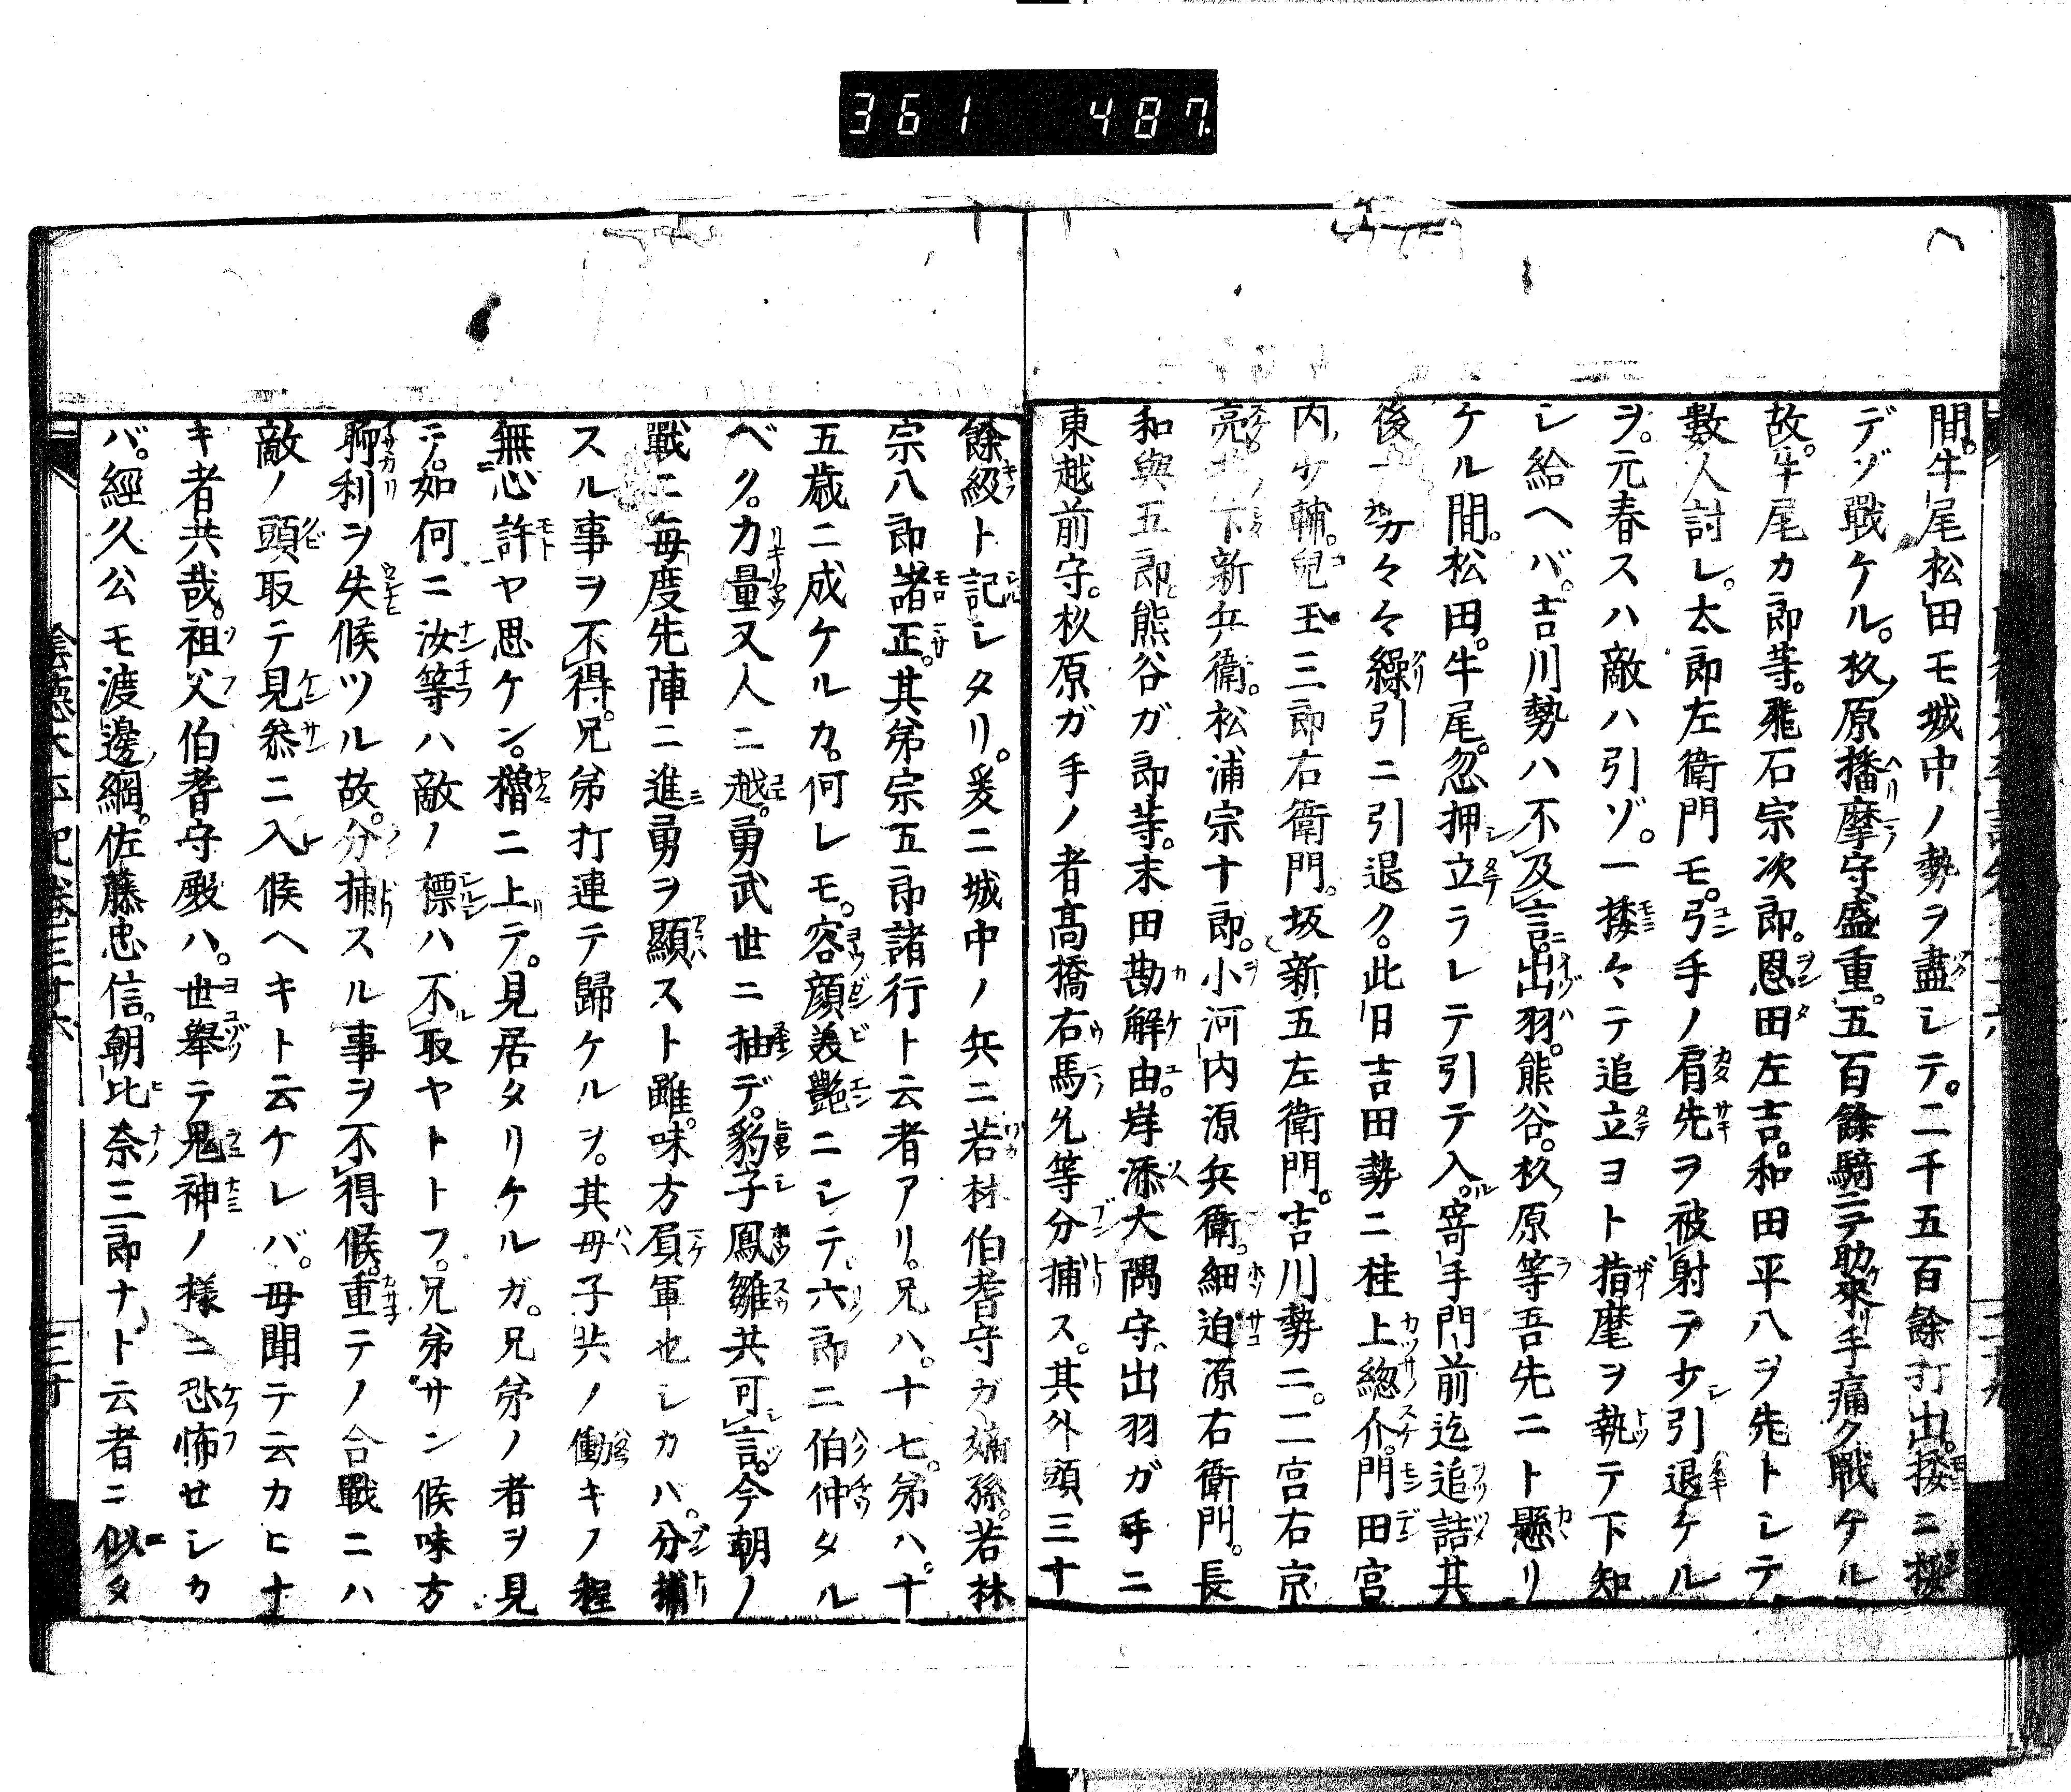 361 487
間。牛尾松田モ城中ノ勢ヲ盡シテ。二千五百餘打出。揉ニ揉
デゾ戰ケル。杉原播摩守盛重。五百餘騎ニテ助來リ手痛ク戰ケル
故。牛尾カ郎等。飛石宗次郎。恩田左吉。和田平八ヲ先トシテ
數人討レ。太郎左衛門モ。弓手ノ肩先ヲ被射テ少引退ケル
ヲ。元春スハ敵ハ引ゾ。一揉々テ追立ヨト指麾ヲ執テ下知
シ給ヘバ。吉川勢ハ不及言。出羽。熊谷。杉原等吾先ニト懸リ
ケル間。松田。牛尾。忽押立ラレテ引テ入。寄手門前迄追詰其
後 勢々々繰引ニ引退ク。此日吉田勢ニ桂上総介。門田宮
内少輔。兒玉三郎右衛門。坂新五左衛門。吉川勢ニ。二宮右京
亮。 下新兵衛。松浦宗十郎。小河内源兵衛。細迫源右衛門。長
和與五郎。熊谷ガ郎等。末田勘解由。岸添大隅守。出羽ガ手ニ
東越前守。杉原ガ手ノ者高橋右馬允等分捕ス。其外頭三十
餘級ト記シタリ。爰ニ城中ノ兵ニ若林伯耆守ガ嫡孫。若林
宗八郎諸正。其弟宗五郎諸行ト云者アリ。兄ハ。十七。弟ハ。十
五歳ニ成ケルカ。何レモ。容顔美艶ニシテ。六郎ニ伯仲タル
ベク。力量又人ニ越。勇武世ニ抽デ。豹子鳳雛共可言。今朝ノ
戰ニ毎度先陣ニ進ミ勇ヲ顯スト雖。味方負軍也シカハ。分捕
スル事ヲ不得。兄弟打連テ歸ケルヲ。其母子共ノ働キノ程
無心許ヤ思ケン。櫓ニ上テ。見居タリケルガ。兄弟ノ者ヲ見
テ。如何ニ汝等ハ敵ノ標ハ不取ヤトトフ。兄弟サン候味方
聊利ヲ失候ツル故。分捕スル事ヲ不得候。重テノ合戰ニハ
敵ノ頭取テ見参ニ入候ヘキト云ケレバ。母聞テ云カヒナ
キ者共哉。祖父伯耆守殿ハ。世擧テ鬼神ノ様ニ恐怖セシカ
バ。經久公モ渡邊綱。佐藤忠信。朝比奈三郎ナト云者ニ似タ
陰徳太平記巻三十六
三十